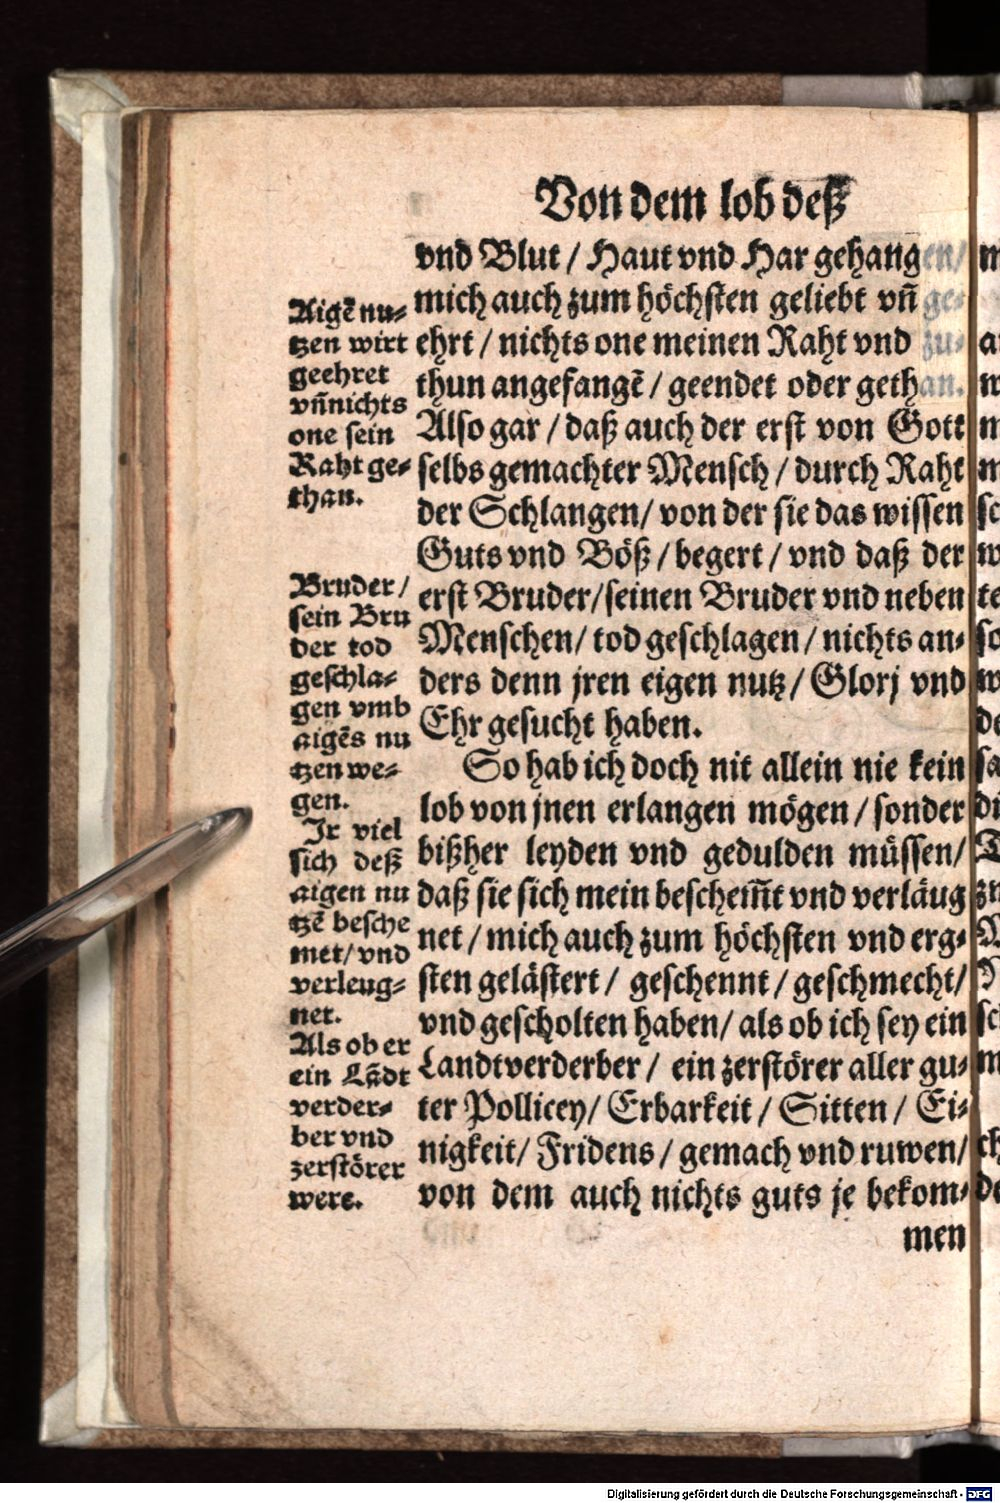 Von dem lob deß
vnd Blut / Haut vnd Har gehangen/
mich auch zum höchsten geliebt vñ ge-
ehrt / nichts one meinen Raht vnd zu-
thun angefangẽ / geendet oder gethan.
Also gar / daß auch der erst von Gott
selbs gemachter Mensch / durch Raht
der Schlangen / von der sie das wissen
Guts vnd Böß / begert / vnd daß der
erst Bruder / seinen Bruder vnd neben
Menschen / tod geschlagen / nichts an-
ders denn jren eigen nutz / Glorj vnd
Ehr gesucht haben.
So hab ich doch nit allein nie kein
lob von jnen erlangen mögen / sonder
bißher leyden vnd gedulden müssen /
daß sie sich mein beschem̃t vnd verläug
net / mich auch zum höchsten vnd erg-
sten gelästert / geschennt / geschmecht /
vnd gescholten haben / als ob ich sey ein
Landtverderber / ein zerstörer aller gu-
ter Pollicey / Erbarkeit / Sitten / Ei-
nigkeit / Fridens / gemach vnd ruwen /
von dem auch nichts guts je bekom-
men
Aigẽ nu-
tzen wirt
geehret
vñ nichts
one sein
Raht ge-
than.
Bruder /
sein Bru
der tod
geschla-
gen vmb
aigẽs nu
tzen we-
gen.
Ir viel
sich deß
aigen nu
tzẽ besche
met / vnd
verleug-
net.
Als ob er
ein Lãdt
verder-
ber vnd
zerstörer
were.
Digitalisierung gefördert durch die Deutsche Forschungsgemeinschaft - DFG